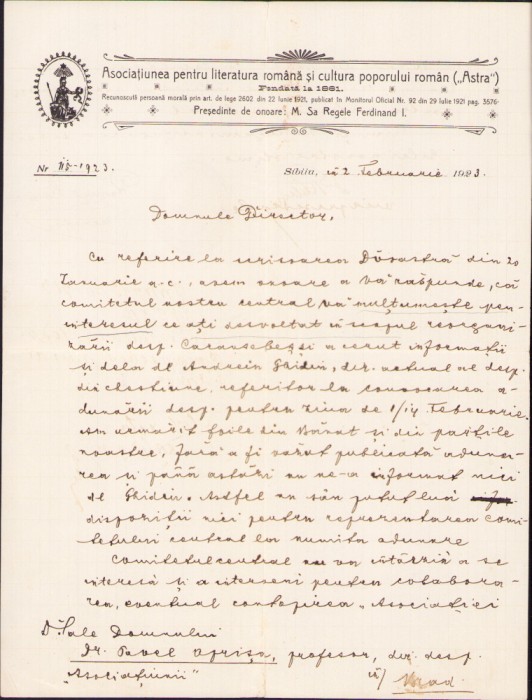 Asociațiunea pentru literatura română și cultura poporului român („Astra")
Fondată la 1861.
Recunoscută persoană morală prin art. de lege 2602 din 22 Iunie 1921, publicat în Monitorul Oficial Nr. 92 din 29 Iulie 1921 pag. 3576
Președinte de onoare: M. Sa Regele Ferdinand I.
Nr. 115-1923.
Sibiiu, în 2 Februarie 1923.
Domnule Director,
Cu referire la scrisoarea Dvoastră din 20
Ianuarie a.c., avem onoare a Vă răspunde, că
comitetul nostru central Vă mulțumește pen-
interesul ce ați desvoltat în scopul reorgani-
zării desp. Caransebeș și a cerut informații
și dela dl Andreiu Ghidiu, dir. actual al desp.
din chestiune, referitor la convocarea a-
dunării desp. pentru ziua de 1/14 Februarie.
Am urmărit foile din Bănat și din părțile
noastre, fără a fi văzut publicată aduna-
rea și până astăzi nu ne-a informat nici
dl Ghidiu. Astfel nu s'au putut lua
dispoziții nici pentru reprezentarea comi-
tetului central la numita adunare
Comitetul central nu va întârzia a se
interesa și a interveni pentru colabora-
rea, eventual contopirea „Asociației
D-Sale Domnului
Dr. Pavel Oprișa, profesor, dir. desp.
„Asociațiunii"
în/ Arad